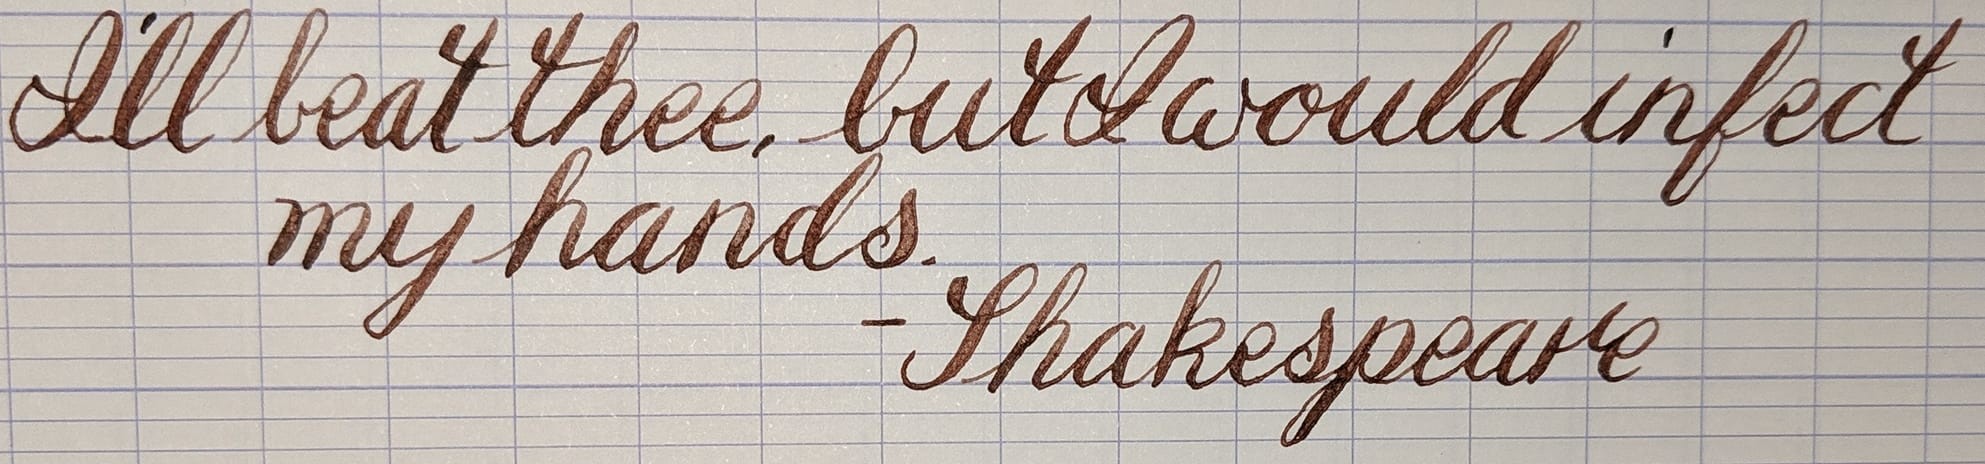 I'll beat thee, but I would infect
my hands.
-Shakespeare